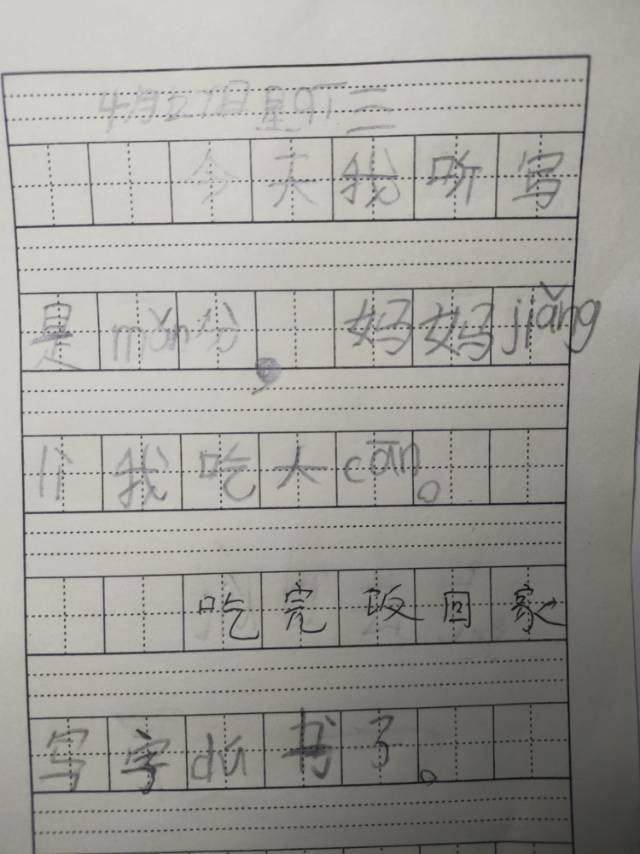 4月27日星期三
今天我听写
是mǎn分，妈妈jiǎng
我吃大cān。
吃完饭回家
写字dú书了。